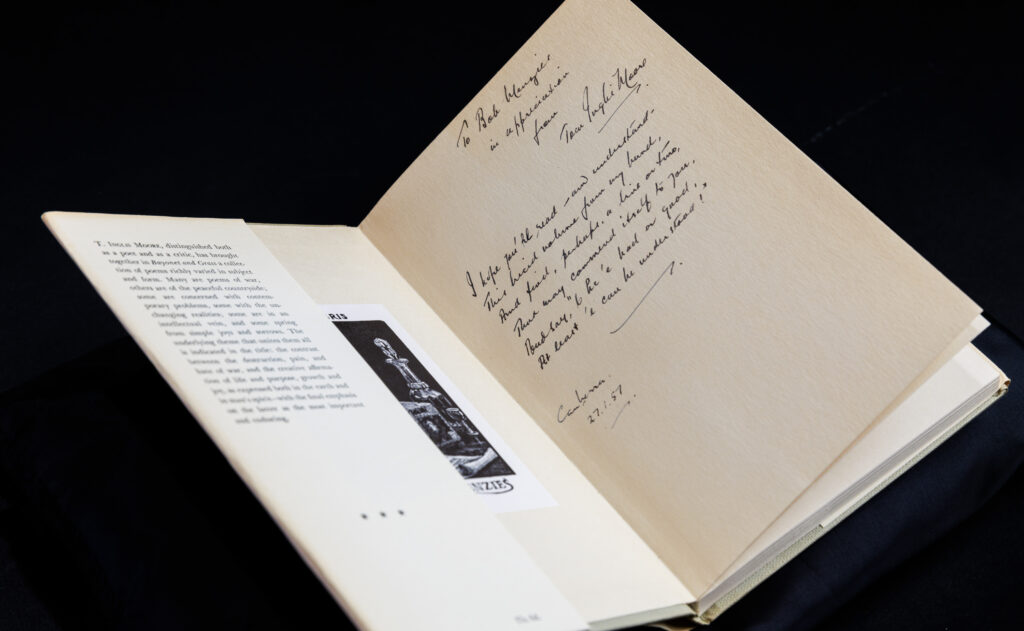 T. INGLIS MOORE, distinguished both
as a poet and as a critic, has brought
together in Bayonet and Grass a collec-
tion of poems richly varied in subject
and form. Many are poems of war,
others are of the peaceful countryside;
some are concerned with contem-
porary problems, some with the un-
changing realities, some are in an
intellectual vein, and some spring
from simple joys and sorrows. The
underlying theme that unites them all
is indicated in the title: the contrast
between the destruction, pain, and
hate of war, and the creative affirma-
tion of life and purpose, growth and
joy, as expressed both in the earth and
in man's spirit—with the final emphasis
on the latter as the most important
and enduring.
* * *
RIS
NZIES
To Bob Menzies
in appreciation
from
Tom Inglis Moore
I hope you'll read – and understand –
This lucid volume from my hand,
And find, perhaps, a line or two,
That may commend itself to you,
And say, "If he's bad or good,
At least 'e can be understood!"
Canberra.
27.1.57.